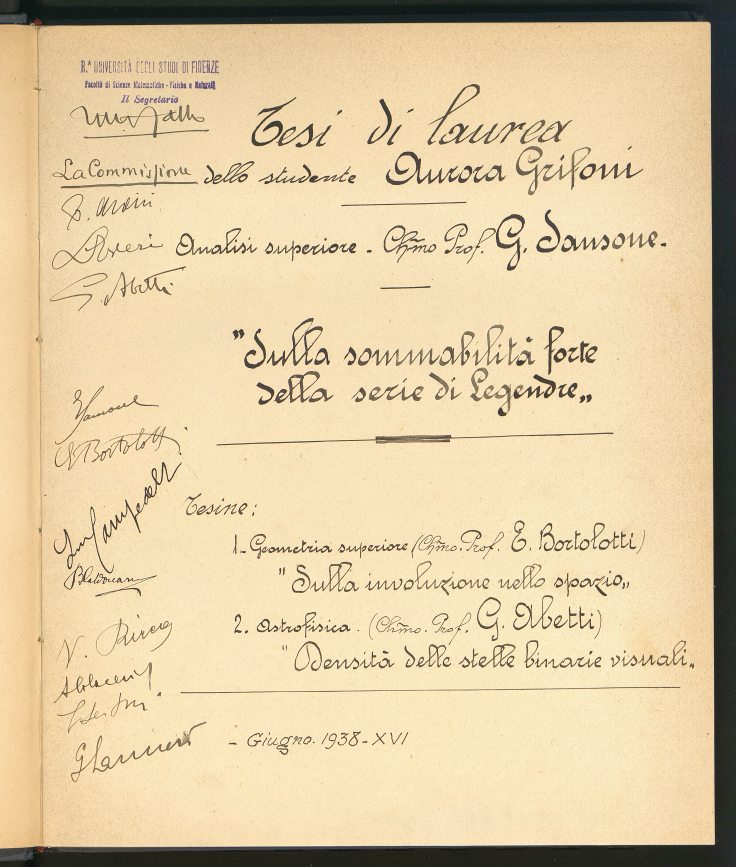 R.ᴬ UNIVERSITÀ DEGLI STUDI DI FIRENZE
Facoltà di Scienze Matematiche - Fisiche e Naturali
Il Segretario
Tesi di laurea
La Commissione
dello studente Aurora Grifoni
Analisi superiore - Chm̃o Prof. G. Sansone -
G. Abetti
"Sulla sommabilità forte
della serie di Legendre„
GSansone
E Bortolotti
Campedelli
Tesine:
1 - Geometria superiore (Chm̃o. Prof. E. Bortolotti)
"Sulla involuzione nello spazio„
2. Astrofisica. (Chm̃o. Prof. G. Abetti)
"Densità delle stelle binarie visuali„
- Giugno. 1938 - XVI